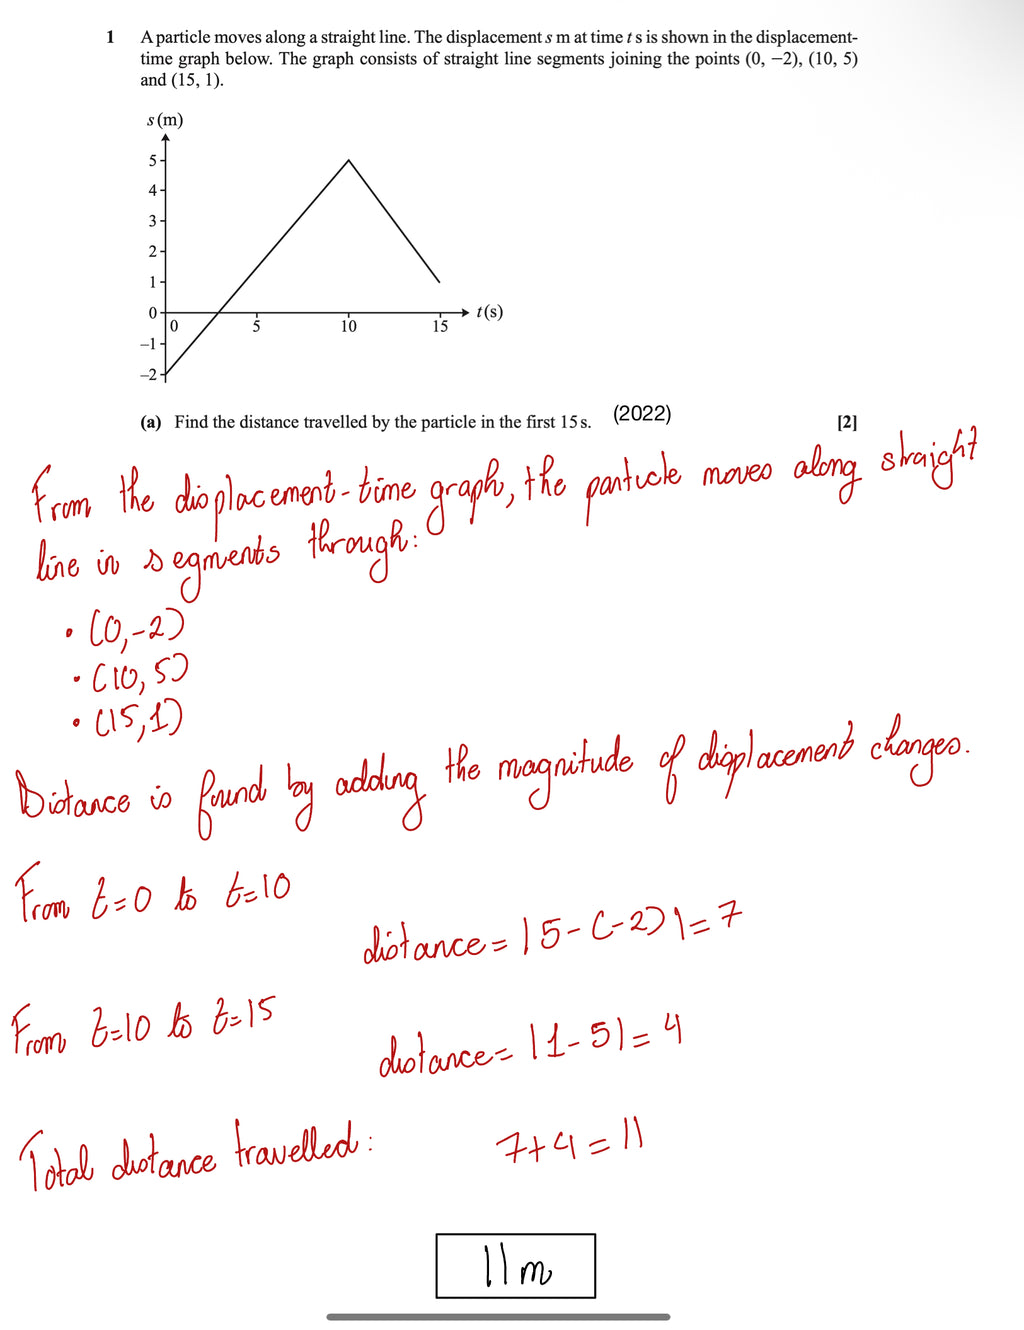 1 A particle moves along a straight line. The displacement s m at time t s is shown in the displacement-
time graph below. The graph consists of straight line segments joining the points (0, −2), (10, 5)
and (15, 1).
s (m)
5
4
3
2
1
0
0 5 10 15 t (s)
−1
−2
(a) Find the distance travelled by the particle in the first 15 s. (2022) [2]
From the displacement-time graph, the particle moves along straight
line in segments through:
• (0,-2)
• (10, 5)
• (15,1)
Distance is found by adding the magnitude of displacement changes.
From t=0 to t=10
distance = |5-(-2)|=7
From t=10 to t=15
distance= |1-5|=4
Total distance travelled: 7+4=11
11m